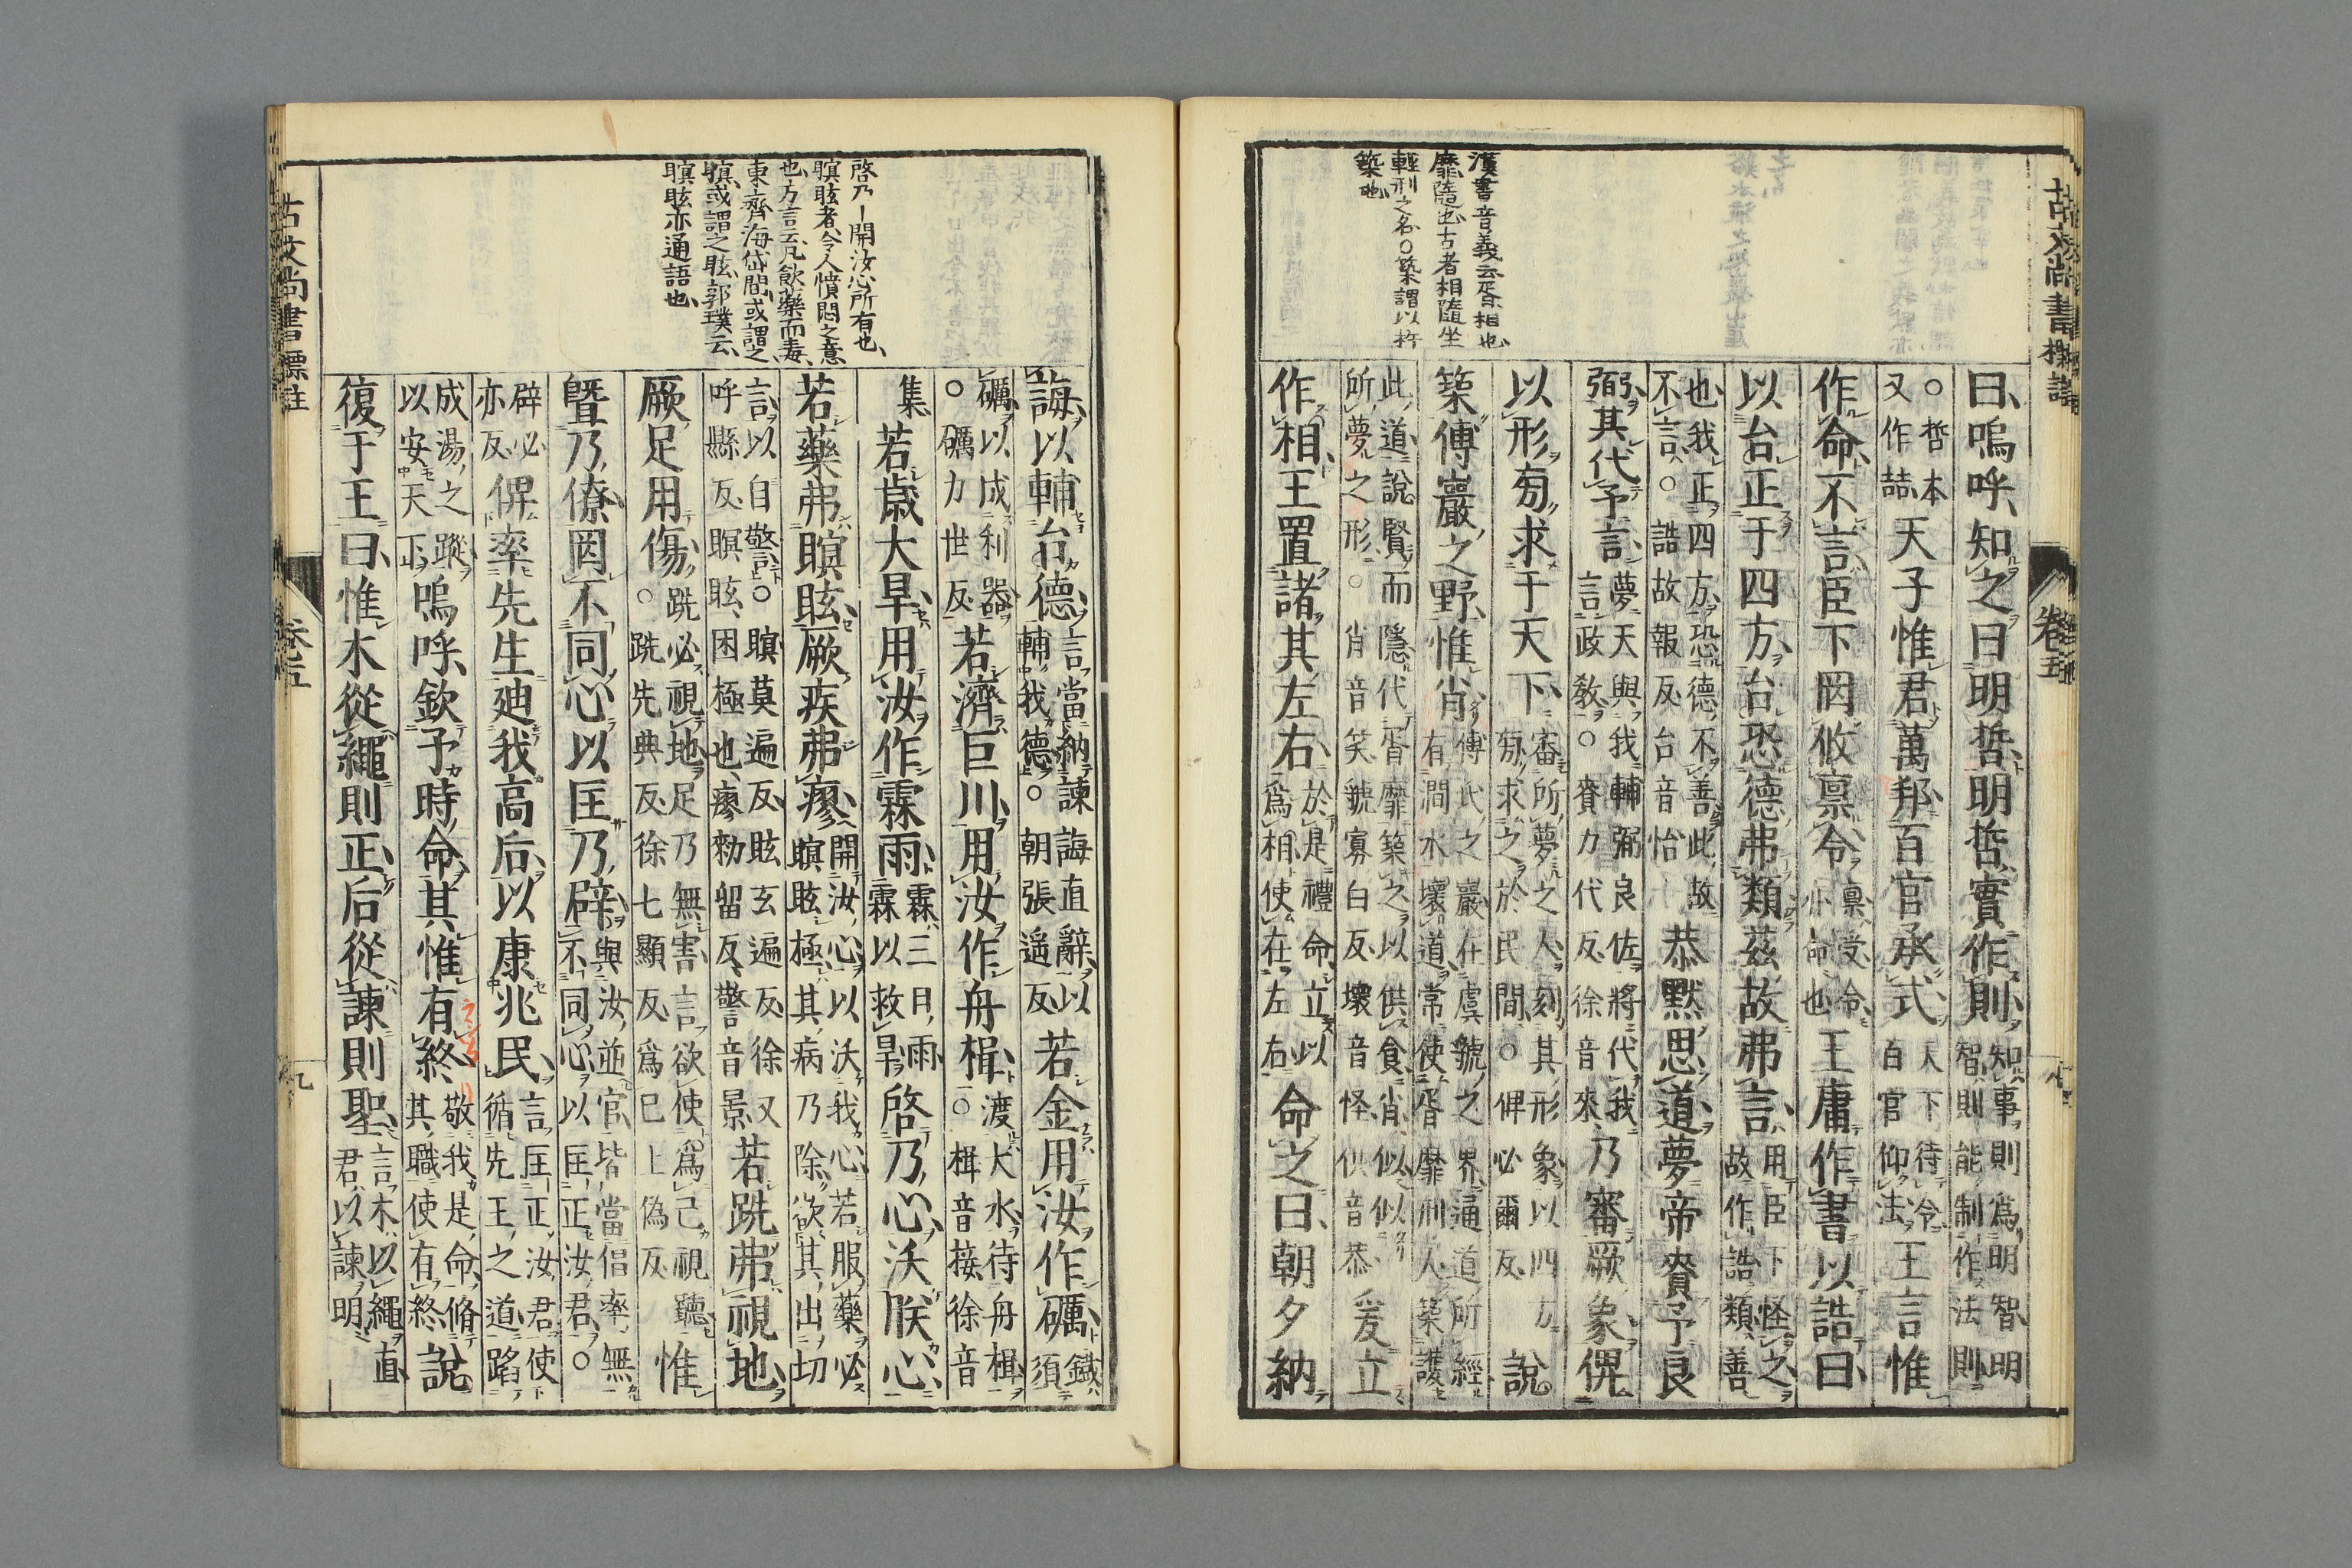 漢書音義云胥相也
靡隨也古者相隨坐
輕刑之名○築謂以杵
築也
曰嗚呼知之曰明哲明哲實作則知事則爲明智明
智則能制作法則
○哲本
又作喆天子惟君萬邦百官承式天下待令
百官仰法王言惟
作命不言臣下罔攸稟令稟受令
亦命也王庸作書以誥曰
以台正于四方台恐德弗類茲故弗言用臣下怪之
故作誥類善
也我正四方恐德不善此故
不言○誥故報反台音怡恭默思道夢帝賚予良
弼其代予言夢天與我輔弼良佐將代我
言政敎○賚力代反徐音來乃審厥象俾
以形旁求于天下審所夢之人刻其形象以四方
旁求之於民間○俾必爾反說
築傅巖之野惟肖傅氏之巖在虞虢之界通道所經
有澗水壞道常使胥靡刑人築護
此道說賢而隱代胥靡築之以供食肖似似
所夢之形○肖音笑虢寡白反壞音怪供音恭爰立
作相王置諸其左右於是禮命立以
爲相使在左右命之曰朝夕納
啓乃ー開汝心所有也
瞑眩者令人憤悶之意
也方言云凡飲藥而毒
東齊海岱間或謂之
瞑或謂之眩郭璞云
瞑眩亦通語也
誨以輔台德言當納諫誨直辭以
輔我德○朝張遥反若金用汝作礪鐵
須
礪以成利器
○礪力世反若濟巨川用汝作舟楫渡大水待舟楫
○楫音接徐音
集若歲大旱用汝作霖雨霖三日雨
霖以救旱啓乃心沃朕心
若藥弗瞑眩厥疾弗瘳開汝心以沃我心若服藥必
瞑眩極其病乃除欲其出切
言以自警○瞑莫遍反眩玄遍反徐又
呼縣反瞑眩困極也瘳勑留反警音景若跣弗視地
厥足用傷跣必視地足乃無害言欲使爲己視聽
○跣先典反徐七顯反爲巳上偽反惟
曁乃僚罔不同心以匡乃辟與汝並官皆當倡率無
不同心以匡正汝君○
辟必
亦反俾率先生廸我高后以康兆民言匡正汝君使
循先王之道蹈
成湯之蹤
以安天下嗚呼欽予時命其惟有終敬我是命脩
其職使有終說
復于王曰惟木從繩則正后從諫則聖言木以繩直
君以諫明
古文尚書標註
卷五
九